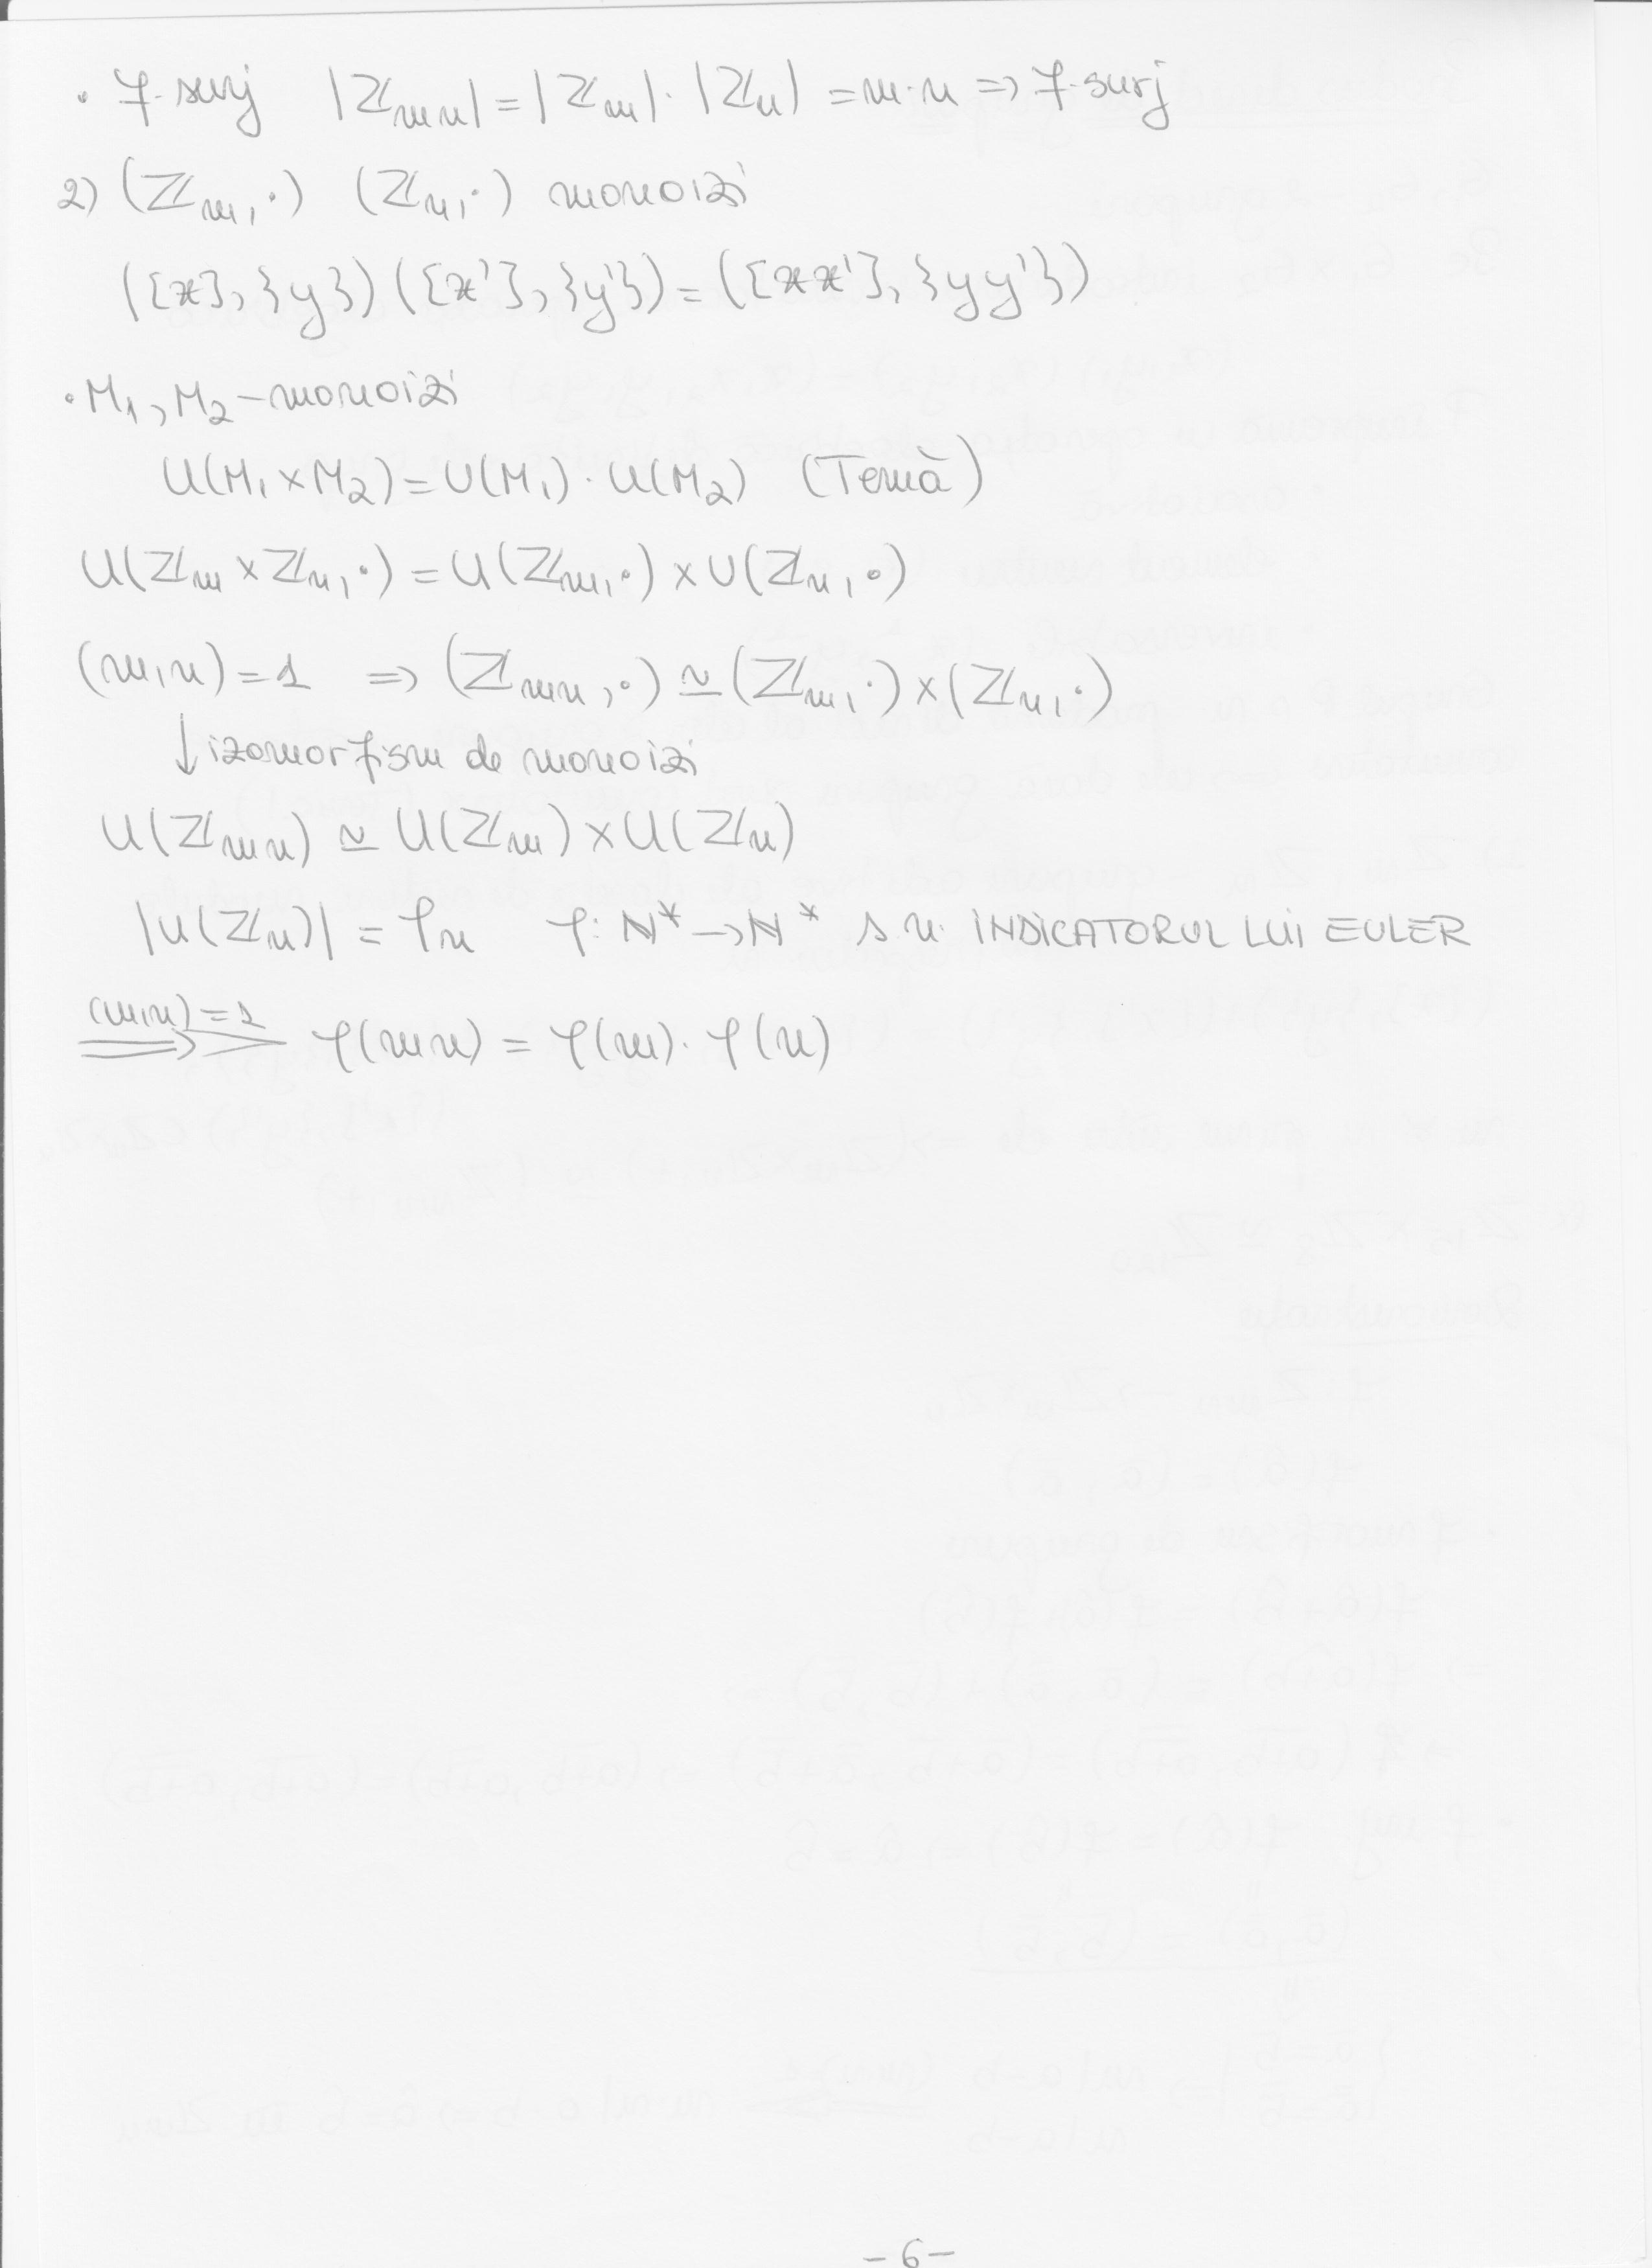 • f-surj |ℤₘₙ| = |ℤₘ| · |ℤₙ| = m·n ⇒ f-surj
2) (ℤₘ, ·) (ℤₙ, ·) monoizi
([x], {y}) ([x'], {y'}) = ([xx'], {yy'})
• M₁, M₂ – monoizi
U(M₁ × M₂) = U(M₁) · U(M₂) (Temă)
U(ℤₘ × ℤₙ, ·) = U(ℤₘ, ·) × U(ℤₙ, ·)
(m, n) = 1 ⇒ (ℤₘₙ, ·) ≃ (ℤₘ, ·) × (ℤₙ, ·)
↓ izomorfism de monoizi
U(ℤₘₙ) ≃ U(ℤₘ) × U(ℤₙ)
|U(ℤₙ)| = φₙ φ: ℕ* → ℕ* s.n. INDICATORUL LUI EULER
(m, n) = 1 ⟹ φ(mn) = φ(m) · φ(n)
– 6 –